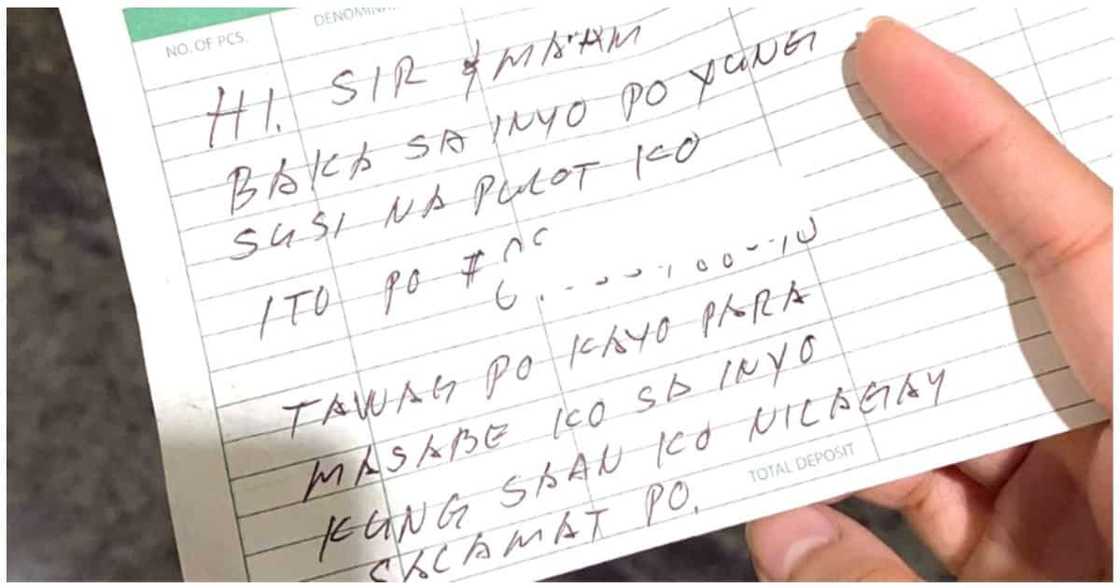 NO. OF PCS.
HI. SIR & MA'AM
BAKA SA INYO PO YUNG
SUSI NA PULOT KO
ITO PO #
TAWAG PO KAYO PARA
MASABE KO SA INYO
KUNG SAAN KO NILAGAY
SALAMAT PO.
TOTAL DEPOSIT